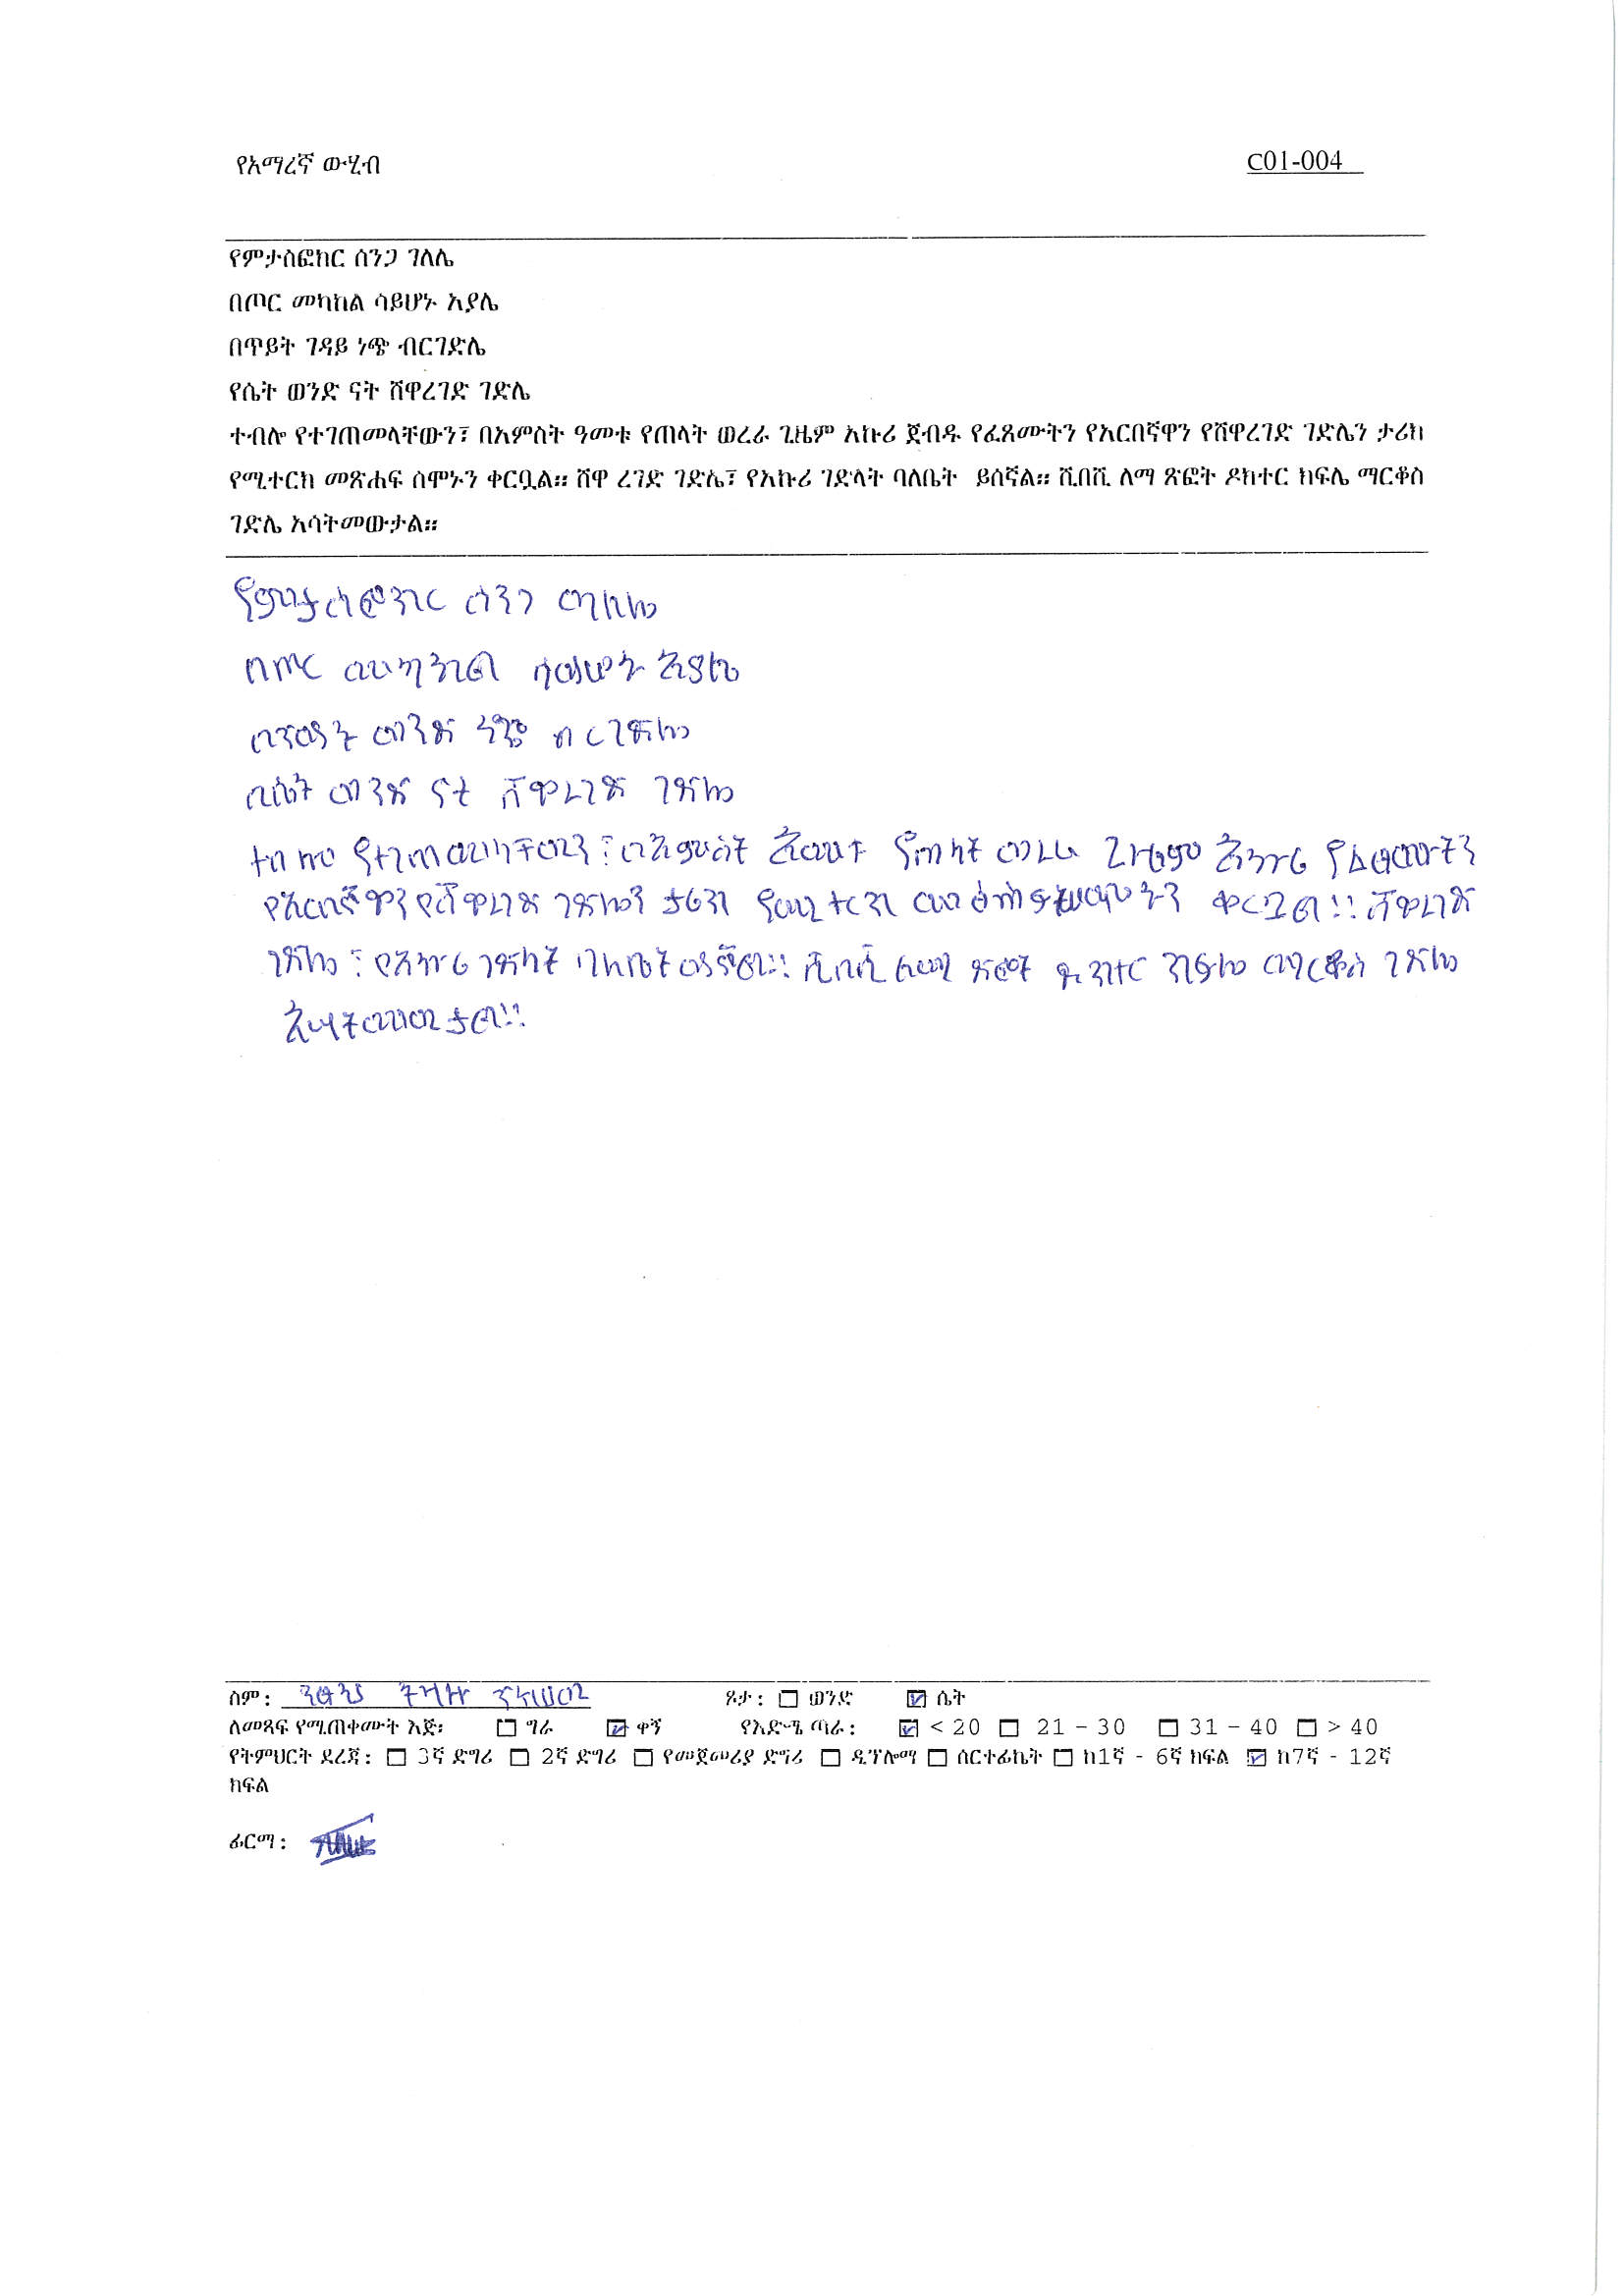 የአማረኛ ውሂብ
C01-004
የምታስፎክር ሰንጋ ገለሌ
በጦር መካከል ሳይሆኑ አያሌ
በጥይት ገዳይ ነጭ ብርገድሌ
የሴት ወንድ ናት ሸዋረገድ ገድሌ
ተብሎ የተገጠመላቸውን፣ በአምስት ዓመቱ የጠላት ወረራ ጊዜም አኩሪ ጀብዱ የፈጸሙትን የአርበኛዋን የሸዋረገድ ገድሌን ታሪክ
የሚተርክ መጽሐፍ ሰሞኑን ቀርቧል። ሸዋ ረገድ ገድሌ፣ የአኩሪ ገድላት ባለቤት ይሰኛል። ሺበሺ ለማ ጽፎት ዶክተር ክፍሌ ማርቆስ
ገድሌ አሳትመውታል።
የምታስፎክር ሰንጋ
በጦር መካከል ሳይሆኑ አያሌ
በጥይት ወንድ ነጭ ብርገድሌ
በሴት ወንድ ናት ሸዋረገድ ገድሌ
ተብሎ የተገጠመላቸውን፣ በአምስት አመቱ የጠላት ወረራ ጊዜም አኩሪ የፈፀሙትን
የአርበኛዋን የሸዋረገድ ገድሌን ታሪክ የሚተርክ ቀርቧል። ሸዋረገድ
ገድሌ፣ የአኩሪ ገድላት ባለቤት ይሰኛል። ሺበሺ ለማ ጽፎት ዶክተር ክፍሌ ማርቆስ ገድሌ
አሳትመውታል።
ስም: ፆታ: ወንድ ሴት
ለመጻፍ የሚጠቀሙት እጅ፡ ግራ ቀኝ የእድሜ ጣራ: < 20 21 – 30 31 – 40 > 40
የትምህርት ደረጃ: 3ኛ ድግሪ 2ኛ ድግሪ የመጀመሪያ ድግሪ ዲፕሎማ ሰርተፊኬት ከ1ኛ - 6ኛ ክፍል ከ7ኛ - 12ኛ
ክፍል
ፊርማ: